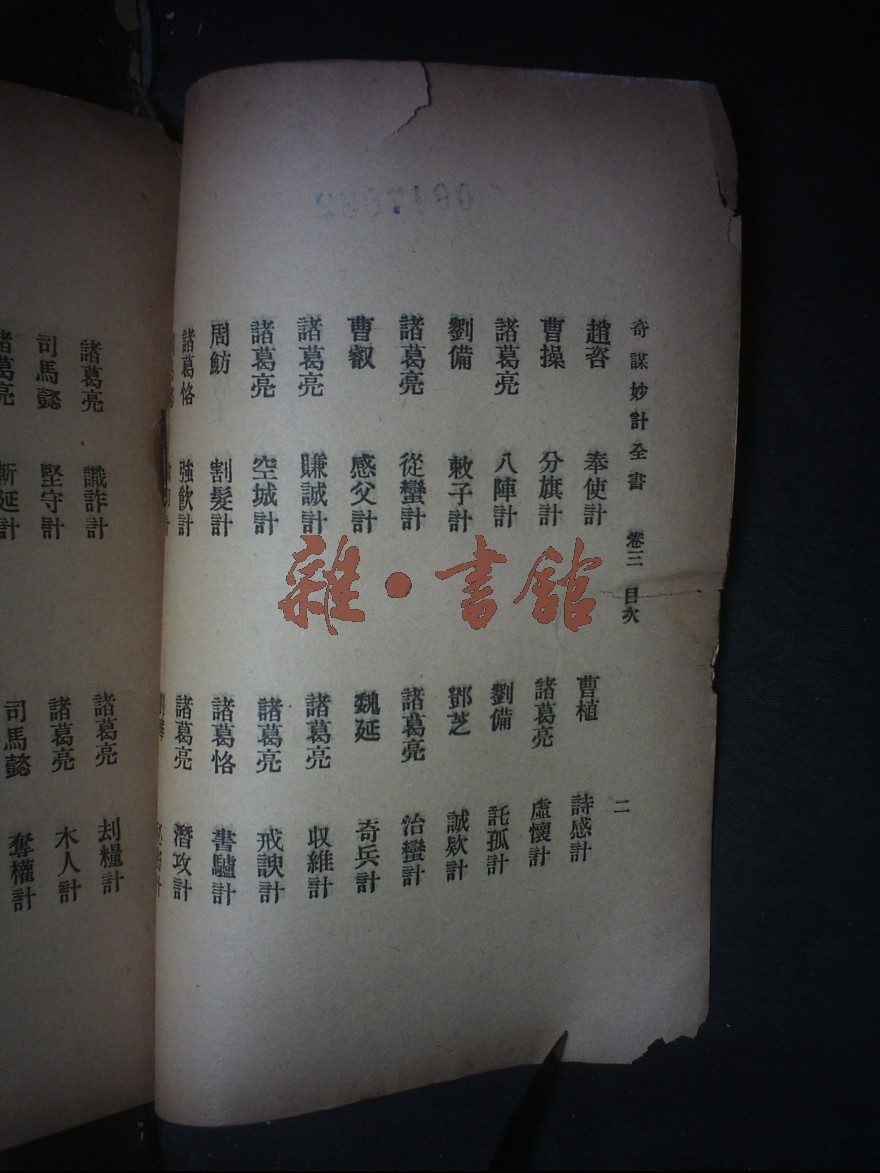 奇謀妙計全書 卷三 目次 二
趙咨 奉使計 曹植 詩感計
曹操 分旗計 諸葛亮 虛懷計
諸葛亮 八陣計 劉備 託孤計
劉備 敕子計 鄧芝 誠欵計
諸葛亮 從蠻計 諸葛亮 治蠻計
曹叡 感父計 魏延 奇兵計
諸葛亮 賺誠計 諸葛亮 収維計
諸葛亮 空城計 諸葛亮 戒諛計
周魴 割髮計 諸葛恪 書驢計
諸葛恪 強飲計 諸葛亮 潛攻計
諸葛亮 識詐計 諸葛亮 刦糧計
司馬懿 堅守計 諸葛亮 木人計
諸葛亮 斬延計 司馬懿 奪權計
雜·書館